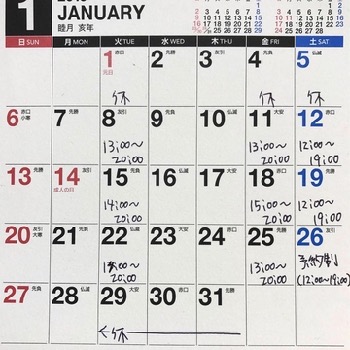 1
JANUARY
睦月 亥年
日 SUN 月 MON 火 TUE 水 WED 木 THU 金 FRI 土 SAT
1 赤口 2 先勝 3 友引 4 先負 5 仏滅
元日
休 休 休
6 赤口 7 先勝 8 友引 9 先負 10 仏滅 11 大安 12 赤口
小寒
13:00~ 13:00~ 12:00~
20:00 20:00 19:00
13 先勝 14 友引 15 先負 16 仏滅 17 大安 18 赤口 19 先勝
成人の日
14:00~ 15:00~ 12:00~
20:00 20:00 19:00
20 友引 21 先負 22 仏滅 23 大安 24 赤口 25 先勝 26 友引
大寒
13:00~ 13:00~ 予約制
20:00 20:00 (12:00~19:00)
27 先負 28 仏滅 29 大安 30 赤口 31 先勝
休